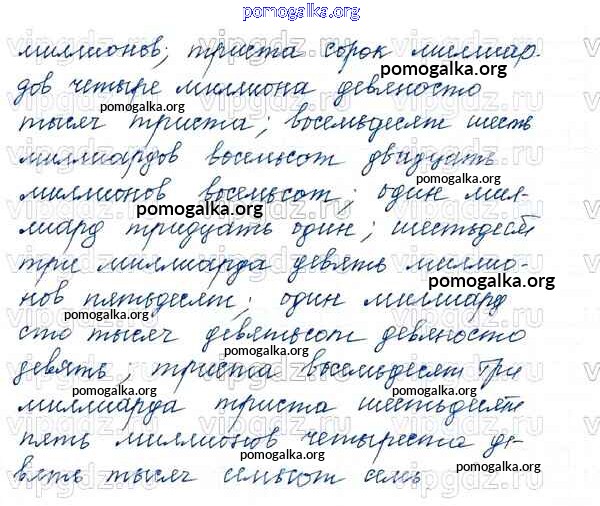 pomogalka.org
миллионов; триста сорок миллиар-
pomogalka.org
дов четыре миллиона девяносто
pomogalka.org
тысяч триста; восемьдесят шесть
миллиардов восемьсот двадцать
pomogalka.org
миллионов восемьсот; один мил-
pomogalka.org
лиард тридцать один; шестьдесят
три миллиарда девять миллио-
pomogalka.org
нов пятьдесят; один миллиард
pomogalka.org
сто тысяч девятьсот девяносто
pomogalka.org
девять; триста восемьдесят три
pomogalka.org
миллиарда триста шестьдесят
пять миллионов четыреста де-
pomogalka.org
pomogalka.org
вять тысяч семьсот семь
vipgdz.ru